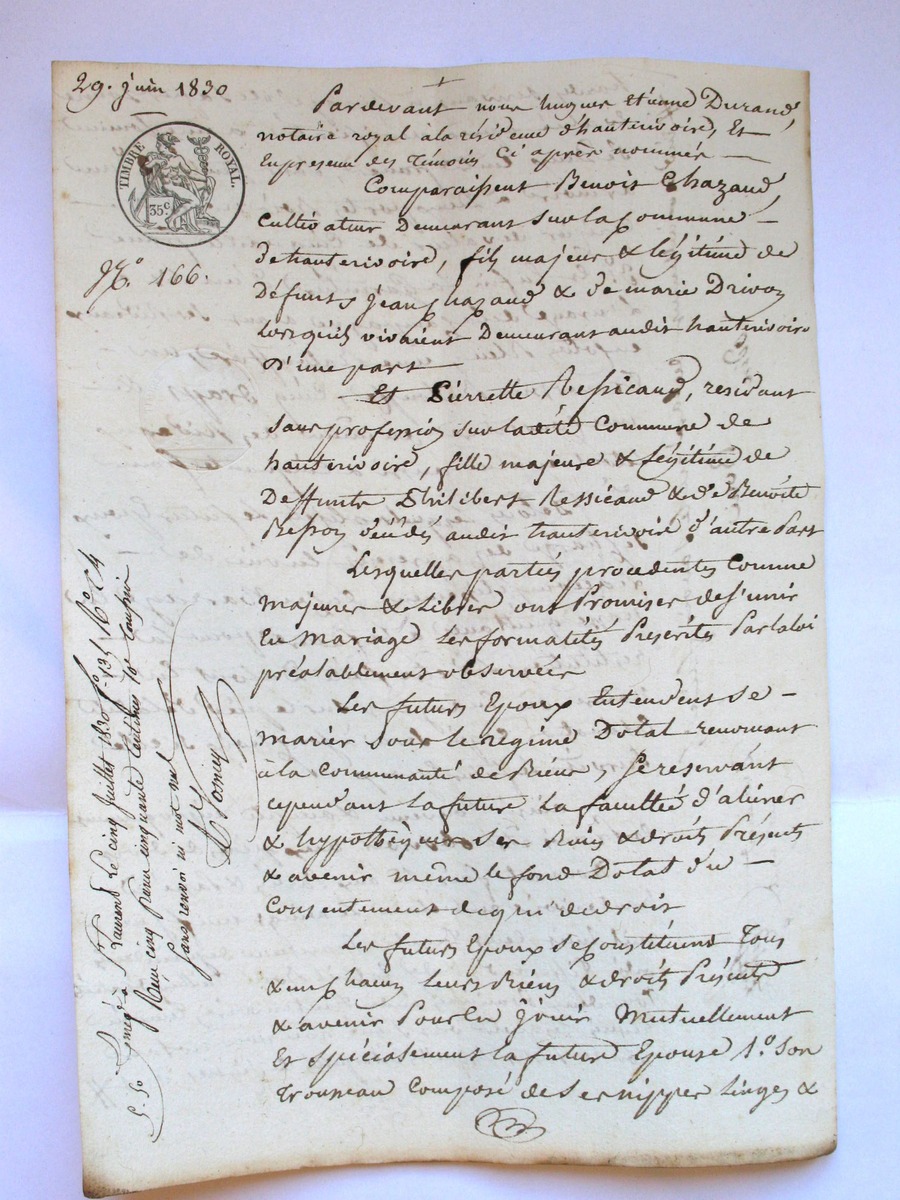 29. juin 1830
TIMBRE ROYAL.
35c.
N.o 166.
Pardevant nous hugues Etienne Durand,
notaire royal à la résidence d'hauterivoire, Et
En presence des Témoins Ci après nommés
Comparaissent Benoit Chazaud
Cultivateur Demeurant Sur la Commune
d'hauterivoire, fils majeur & légitime de
Défunts jean Chazaud & de marie Drivon
lorsqu'ils vivaient Demeurant audit hauterivoire
D'une part
Et Pierrette Ressicaud, residant
Sans profession Sur ladite Commune de
hauterivoire, fille majeure & légitime de
Deffunts Philibert Ressicaud & de Benoite
Besson décédés audit hauterivoire d'autre Part
Lesquelles parties procedentes Comme
majeures & Libres ont Promises de S'unir
En Mariage Les formalités Prescrites Par la loi
préalablement observées
Les futurs Epoux Entendent Se
marier Sous le regime Dotal renonçant
à la Communauté de Biens, Se reservant
cependant la future la faculté d'aliéner
& hypothéquer Ses Biens & droits Présents
& avenir même le fond Dotal du
Consentement de qui de droit
Les futurs Epoux Se Constituent Tous
& un Chacun leurs Biens & droits Présents
& avenir Pour En Jouir Mutuellement
Et Spécialement la future Epouse 1.o Son
Trousseau Composé de Ses nippes Linges &
Enregé à St Laurent le cinq juillet 1830 fo 135 Ro Cc 4
Reçu cinq francs cinquante centimes 10e compris
Sans renvoi ni mot nul
5. 50